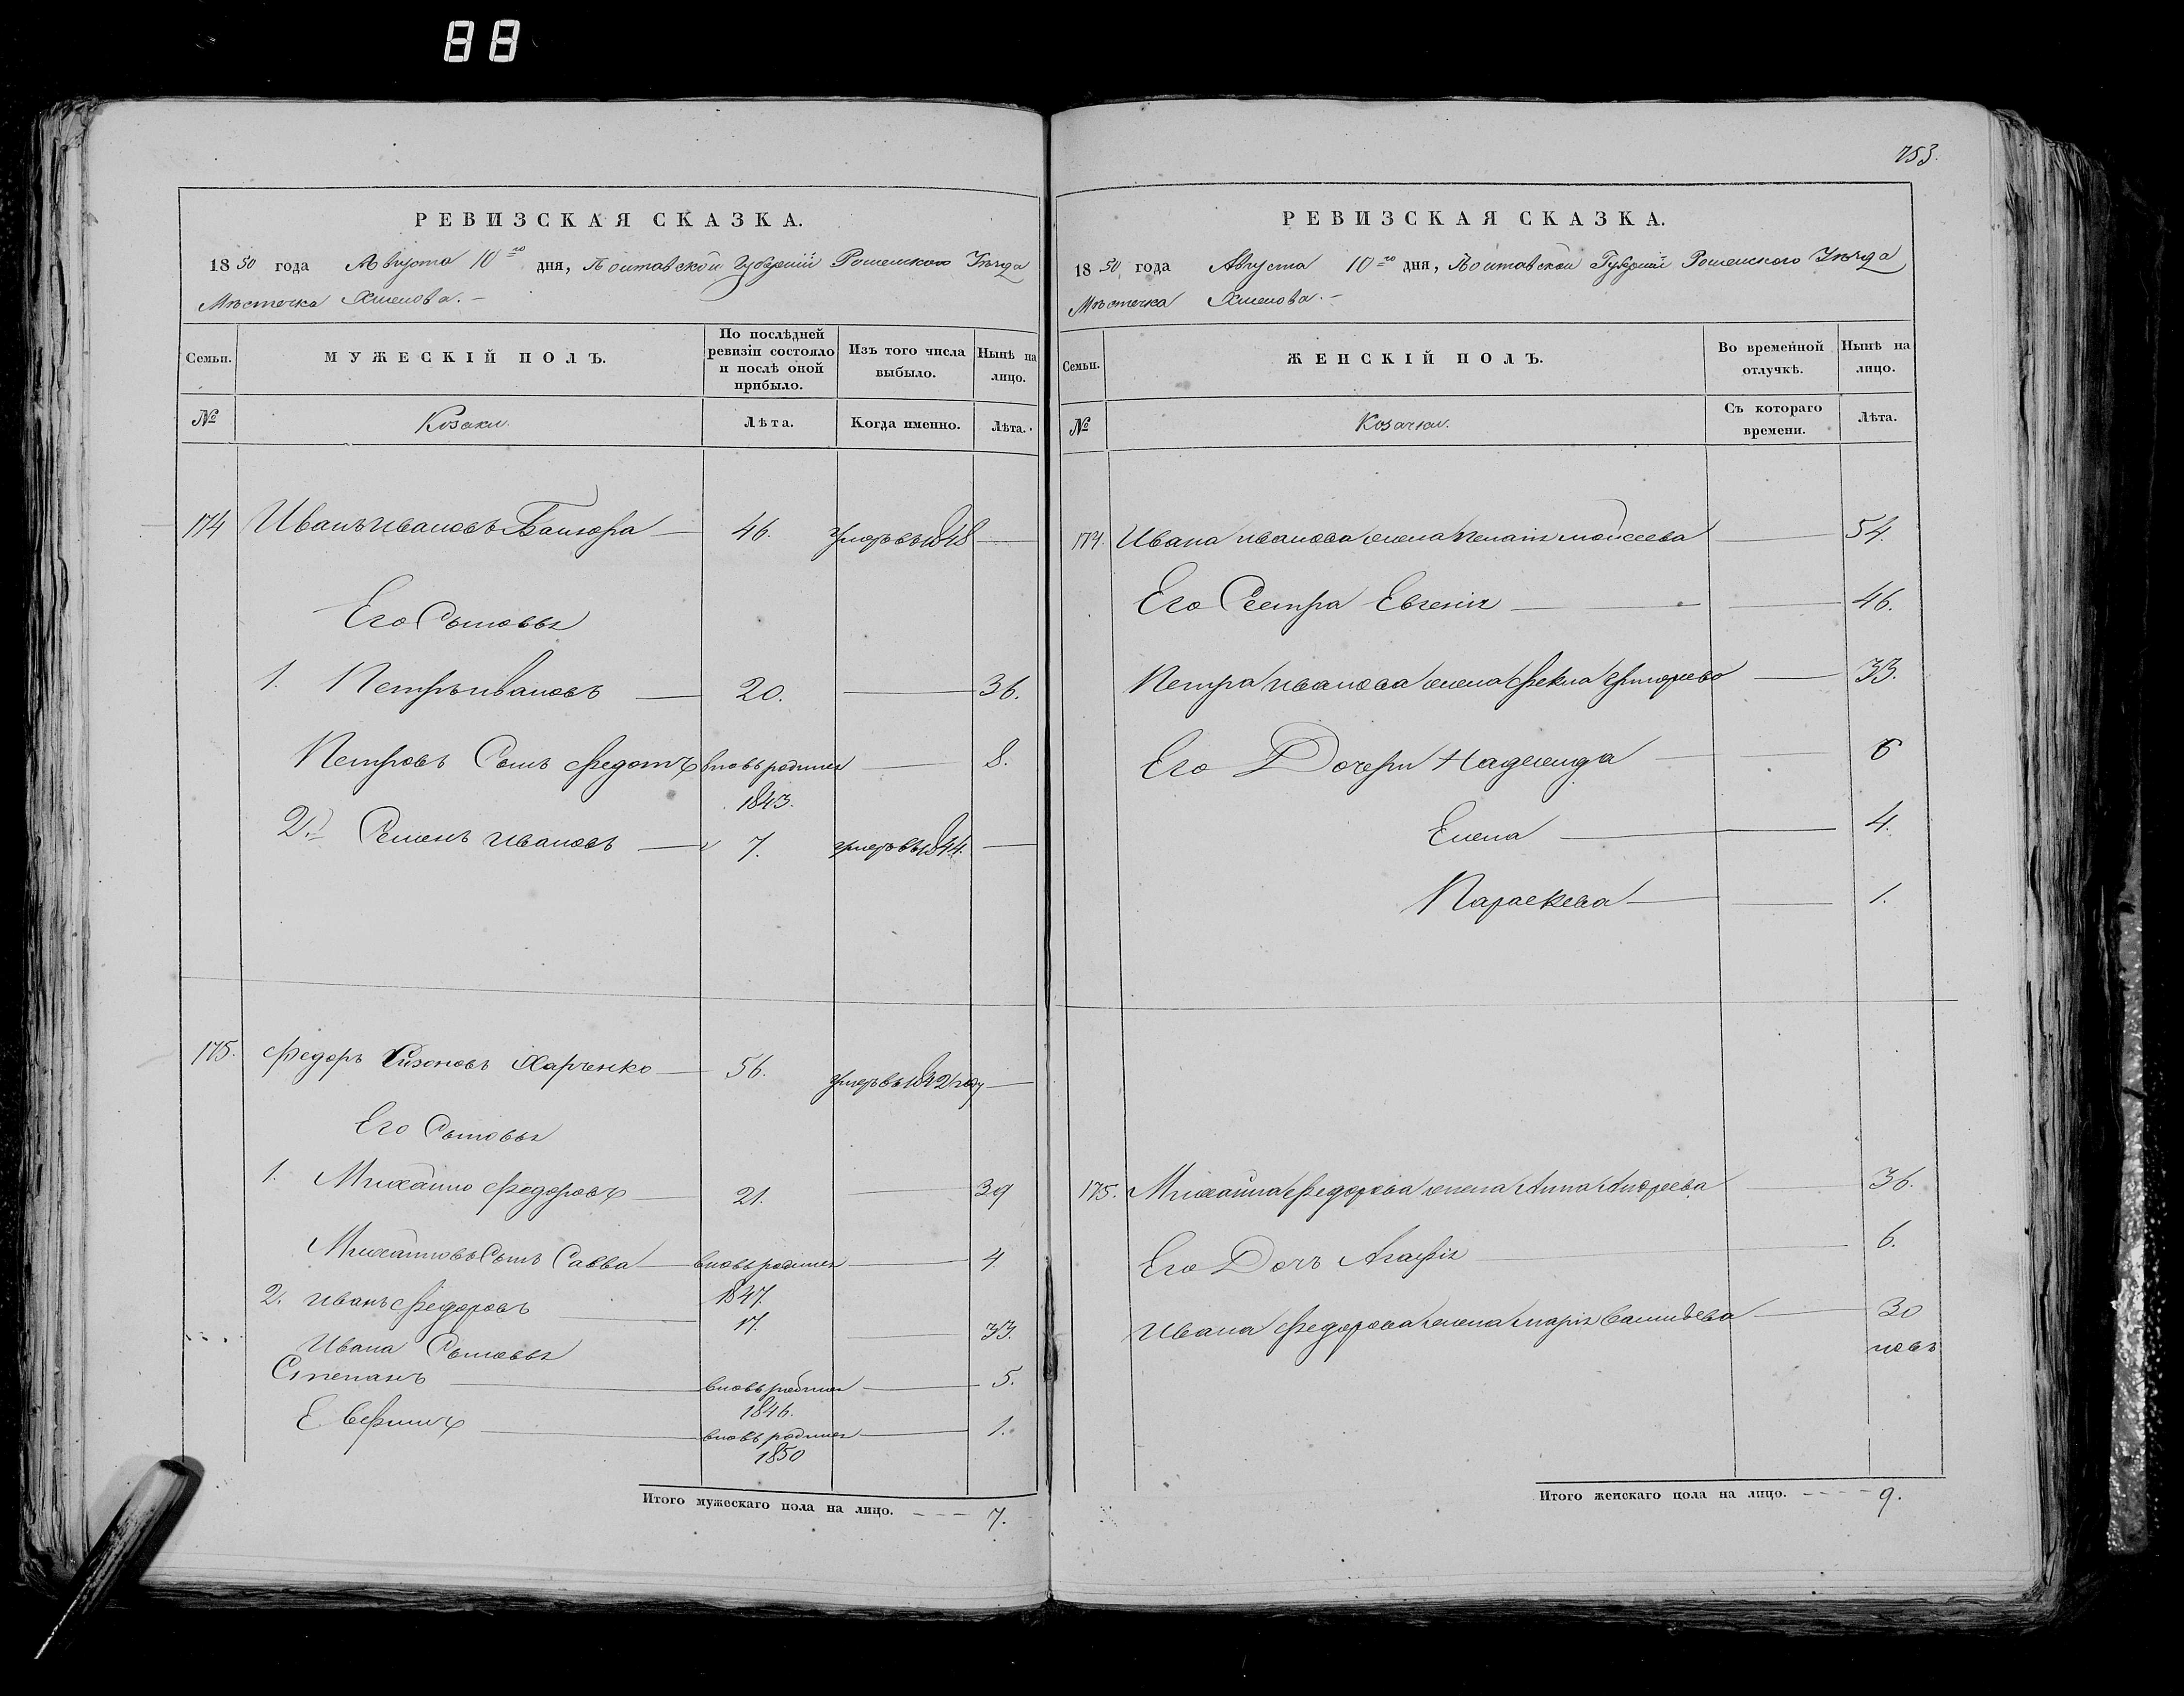 88
753.
РЕВИЗСКАЯ СКАЗКА.
1850 года Августа 10го дня, Полтавской Губерніи Роменского Уѣзда
Мѣстечка
МУЖЕСКІЙ ПОЛЪ.
Семьи.
По послѣдней ревизіи состояло и послѣ оной прибыло.
Изъ того числа выбыло.
Ныне на лицо.
№ Козаки Лѣта. Когда именно. Лѣта.
174 Иванъ Ивановъ 46. умеръ въ 1848
Его Сыновья
1. Петръ Ивановъ 20. 36.
Петровъ Сынъ Федотъ вновь родился 8.
1843.
2. Семенъ Ивановъ 7. умеръ въ 1844.
175. Федоръ Харченко 56. умеръ въ 1842 году
Его Сыновья
1. Михайло Федоровъ 21. 37
Михайловъ Сынъ Савва вновь родился 4
1847.
2. Иванъ Федоровъ 17. 33.
Ивана Сыновья
Степанъ вновь родился 5.
1846.
вновь родился 1.
1850
Итого мужескаго пола на лицо. 7.
РЕВИЗСКАЯ СКАЗКА.
1850 года Августа 10го дня, Полтавской Губерніи Роменского Уѣзда
Мѣстечка
Семьи.
ЖЕНСКІЙ ПОЛЪ.
Во временной отлучкѣ.
Нынѣ на лицо.
№ Козачки. Съ котораго времени. Лѣта.
174. Ивана Иванова жена Моисеева 54.
Его Сестра Евгенія 46.
Петра Иванова жена Фекла 33.
Его Дочери Надежда 6
Елена 4.
Параскева 1.
175. Михайла Федорова жена Анна Андреева 36.
Его Дочь Агафія 6.
Ивана Федорова жена Марія 30
Итого женскаго пола на лицо. 9.